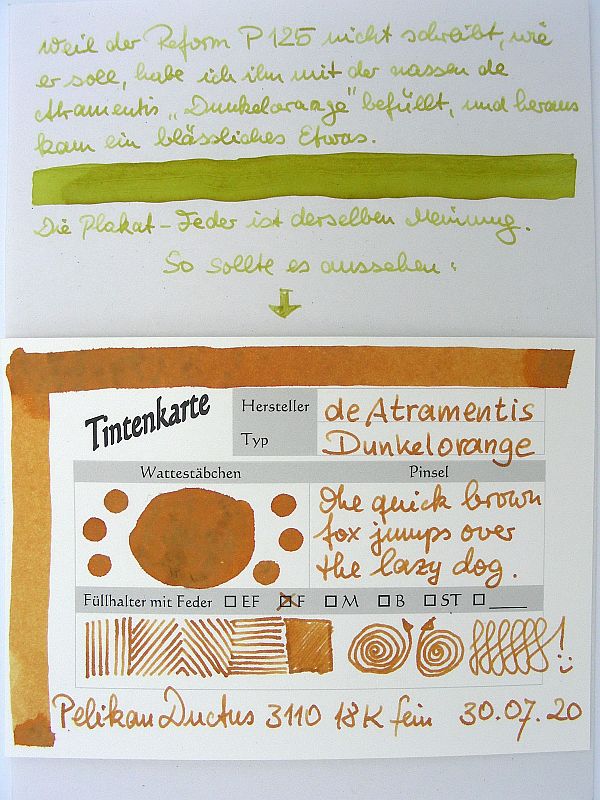 weil der Reform P 125 nicht schreibt, wie
er soll, habe ich ihn mit der nassen de
Atramentis „Dunkelorange" befüllt, und heraus
kam ein blässliches Etwas.
Die Plakat-Feder ist derselben Meinung.
So sollte es aussehen:
Tintenkarte
Hersteller de Atramentis
Typ Dunkelorange
Wattestäbchen Pinsel
The quick brown
fox jumps over
the lazy dog.
Füllhalter mit Feder ☐ EF ☒ F ☐ M ☐ B ☐ ST ☐ ____
Pelikan Ductus 3110 18K fein 30.07.20